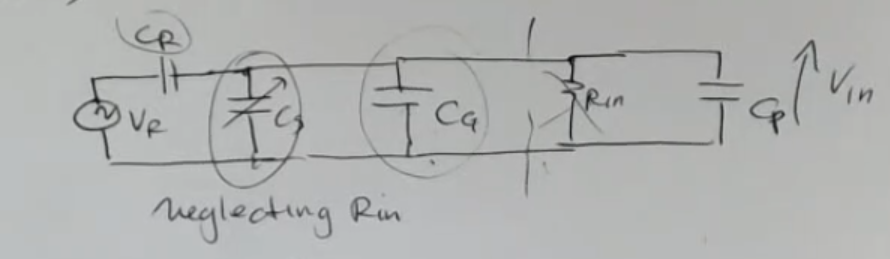 CR
VR
Cs
CG
Rin
Cp
Vin
neglecting Rin